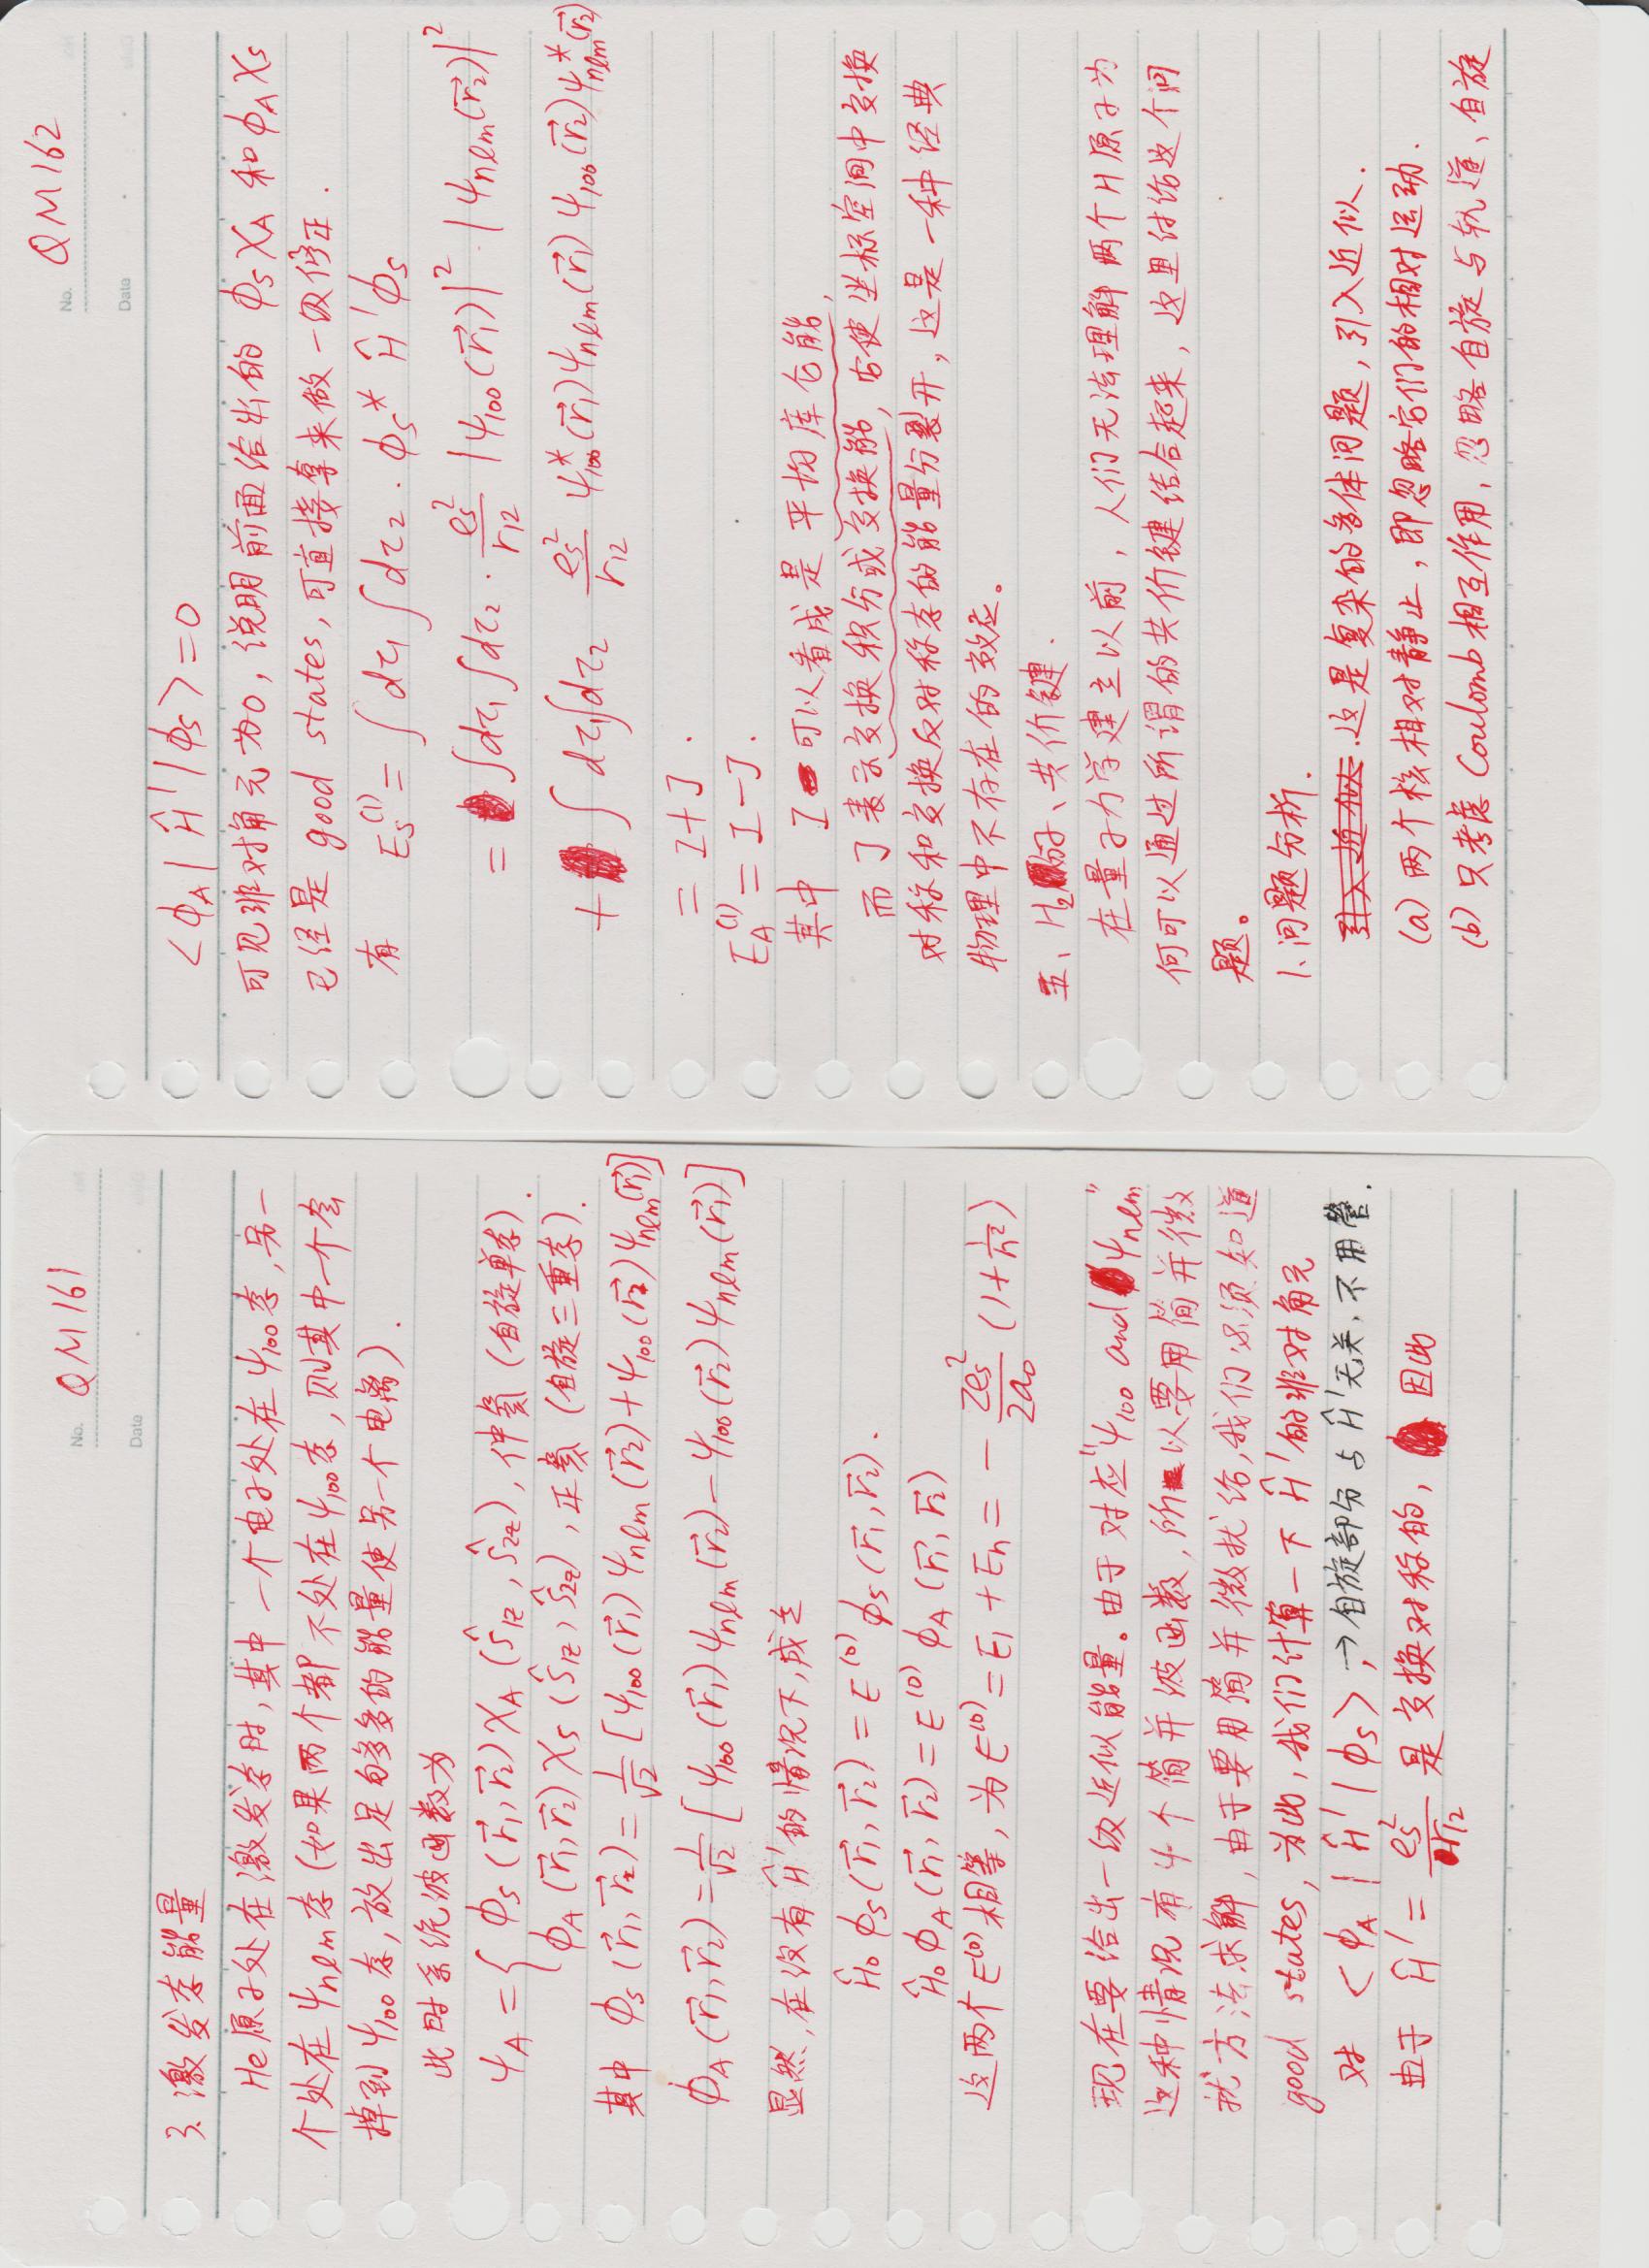 No. QM161
Date
3. 激发态能量
He原子处在激发态时,其中一个电子处在ψ₁₀₀态,另一
个处在ψnlm态(如果两个都不处在ψ₁₀₀态,则其中一个会
掉到ψ₁₀₀态,放出足够多的能量使另一个电离).
此时系统波函数为
ψ_A = { ϕ_S(r⃗₁,r⃗₂)χ_A(ŝ₁z,ŝ₂z),仲氦(自旋单态).
ϕ_A(r⃗₁,r⃗₂)χ_S(ŝ₁z,ŝ₂z),正氦(自旋三重态).
其中 ϕ_S(r⃗₁,r⃗₂)=1/√2 [ψ₁₀₀(r⃗₁)ψnlm(r⃗₂)+ψ₁₀₀(r⃗₂)ψnlm(r⃗₁)]
ϕ_A(r⃗₁,r⃗₂)=1/√2 [ψ₁₀₀(r⃗₁)ψnlm(r⃗₂)−ψ₁₀₀(r⃗₂)ψnlm(r⃗₁)]
显然,在没有Ĥ'的情况下,成立
Ĥ₀ϕ_S(r⃗₁,r⃗₂)=E⁽⁰⁾ϕ_S(r⃗₁,r⃗₂).
Ĥ₀ϕ_A(r⃗₁,r⃗₂)=E⁽⁰⁾ϕ_A(r⃗₁,r⃗₂)
这两个E⁽⁰⁾相等,为E⁽⁰⁾=E₁+En=−Ze_s²/2a₀ (1+1/n²)
现在要给出一级近似能量。由于对应"ψ₁₀₀ and ψnlm"
这种情况有4个简并波函数,所以要用简并微
扰方法求解,由于要用简并微扰论,我们必须知道
good states,为此,我们计算一下Ĥ'的非对角元
对 <ϕ_A|Ĥ'|ϕ_S>,→自旋部分与Ĥ'无关,不用管.
由于 Ĥ'=e_s²/r₁₂ 是交换对称的, 因此
No. QM162
Date
<ϕ_A|Ĥ'|ϕ_S>=0
可见非对角元为0,说明前面给出的 ϕ_Sχ_A 和 ϕ_Aχ_S
已经是 good states,可直接拿来做一级修正.
有 E_S⁽¹⁾=∫dτ₁∫dτ₂·ϕ_S* Ĥ'ϕ_S
= ∫dτ₁∫dτ₂·e_s²/r₁₂ |ψ₁₀₀(r⃗₁)|²·|ψnlm(r⃗₂)|²
+ ∫dτ₁∫dτ₂ e_s²/r₁₂ ψ₁₀₀*(r⃗₁)ψnlm(r⃗₁)ψ₁₀₀(r⃗₂)ψnlm*(r⃗₂)
= I+J.
E_A⁽¹⁾=I−J.
其中 I 可以看成是平均库仑能,
而J表示交换积分或交换能,它使坐标空间中交换
对称和交换反对称态的能量分裂开,这是一种经典
物理中不存在的效应。
五、H₂分子、共价键.
在量子力学建立以前,人们无法理解两个H原子为
何可以通过所谓的共价键结合起来,这里讨论这个问
题。
1.问题分析.
引入近似.这是复杂的多体问题,引入近似.
(a)两个核相对静止,即忽略它们的相对运动.
(b)只考虑Coulomb相互作用,忽略自旋与轨道、自旋